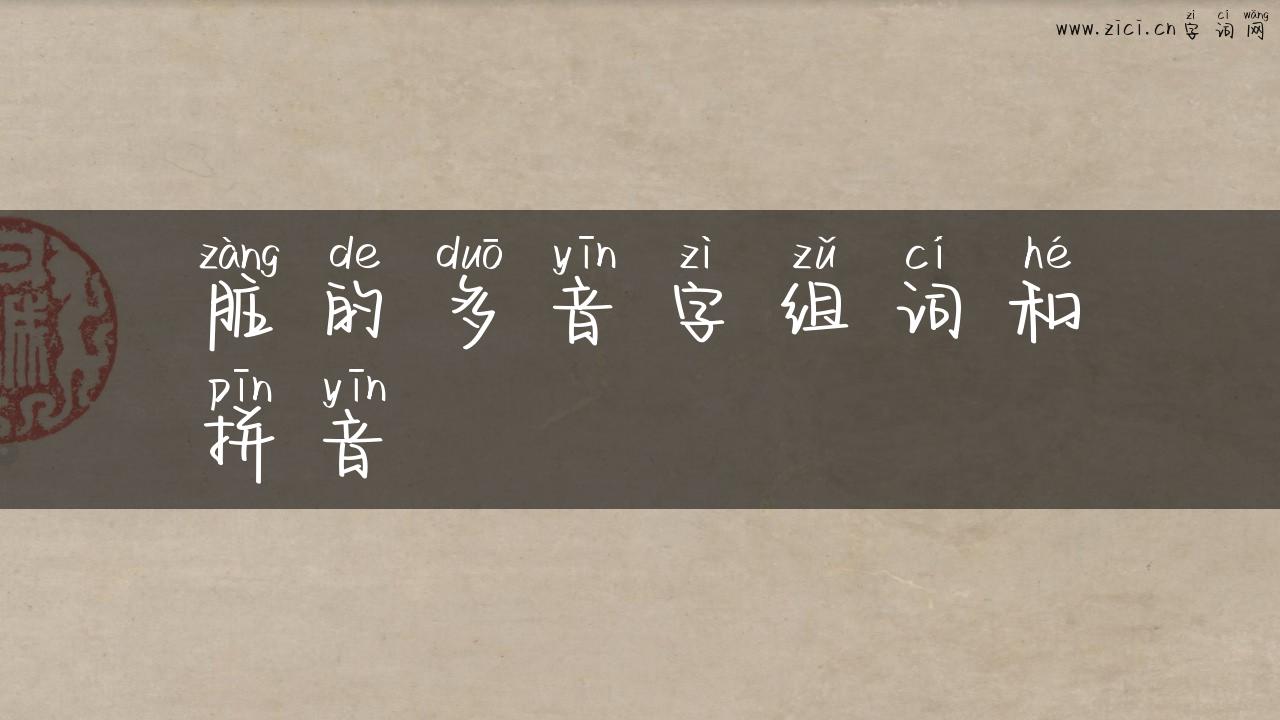 zì cí wǎng
www.zici.cn 字词网
zàng de duō yīn zì zǔ cí hé
脏的多音字组词和
pīn yīn
拼音